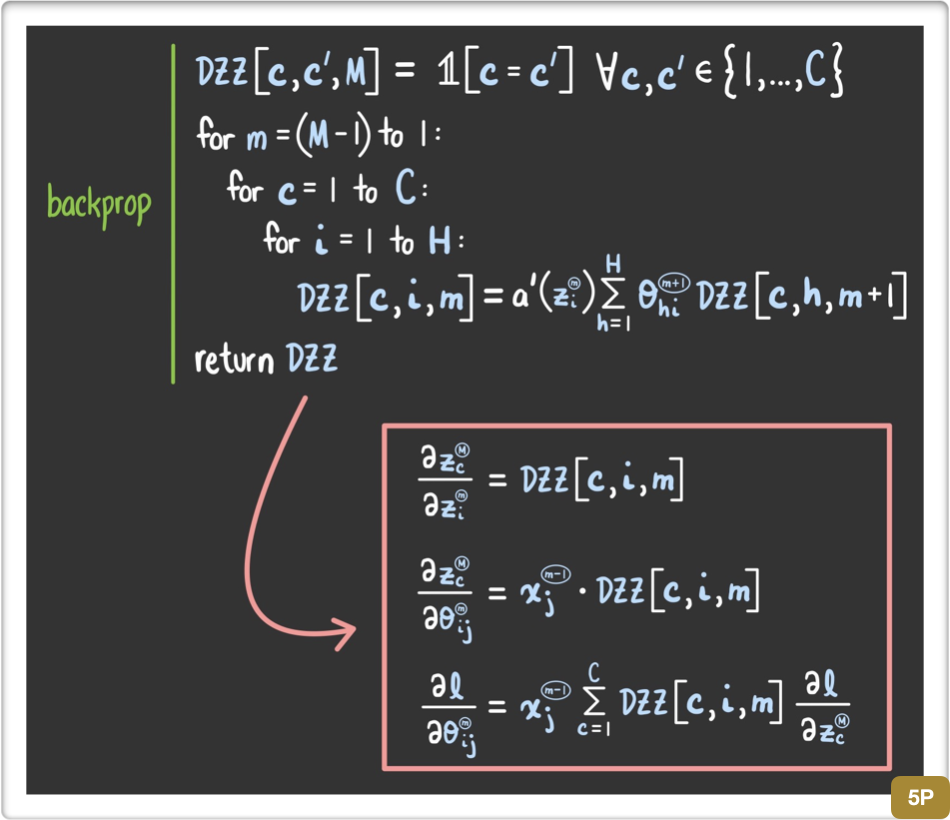 DZZ[c,c',M] = 𝟙[c=c'] ∀c,c' ∈ {1,...,C}
for m = (M-1) to 1:
for c = 1 to C:
backprop
for i = 1 to H:
DZZ[c,i,m] = a'(z_i^(m)) ∑_{h=1}^{H} θ_{hi}^(m+1) DZZ[c,h,m+1]
return DZZ
∂z_c^(M) / ∂z_i^(m) = DZZ[c,i,m]
∂z_c^(M) / ∂θ_{ij}^(m) = x_j^(m-1) · DZZ[c,i,m]
∂l / ∂θ_{ij}^(m) = x_j^(m-1) ∑_{c=1}^{C} DZZ[c,i,m] ∂l / ∂z_c^(M)
5P